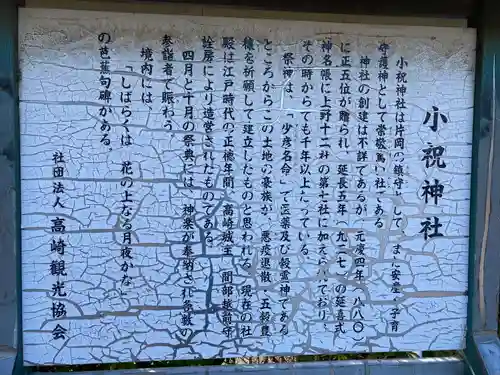 小祝神社
小祝神社は片岡の鎮守として、また安産、子育
守護神として崇敬篤い社である。
神社の創建は不詳であるが、元慶四年(八八〇)
に正五位が贈られ、延長五年(九二七)の延喜式
神名帳に上野十二社の第七社に加えられており、
その時からでも千年以上たっている。
祭神は、「少彦名命」で医薬及び穀霊神である
ところからこの土地の豪族が、悪疫退散、五穀豊
穣を祈願して建立したものと思われる。現在の社
殿は江戸時代の正徳年間、高崎城主、間部越前守
詮房により造営されたものである。
四月と十月の祭典には、神楽が奉納され多数の
参詣者で賑わう。
境内には、
「しばらくは 花の上なる月夜かな」
の芭蕉句碑がある。
社団法人 高崎観光協会